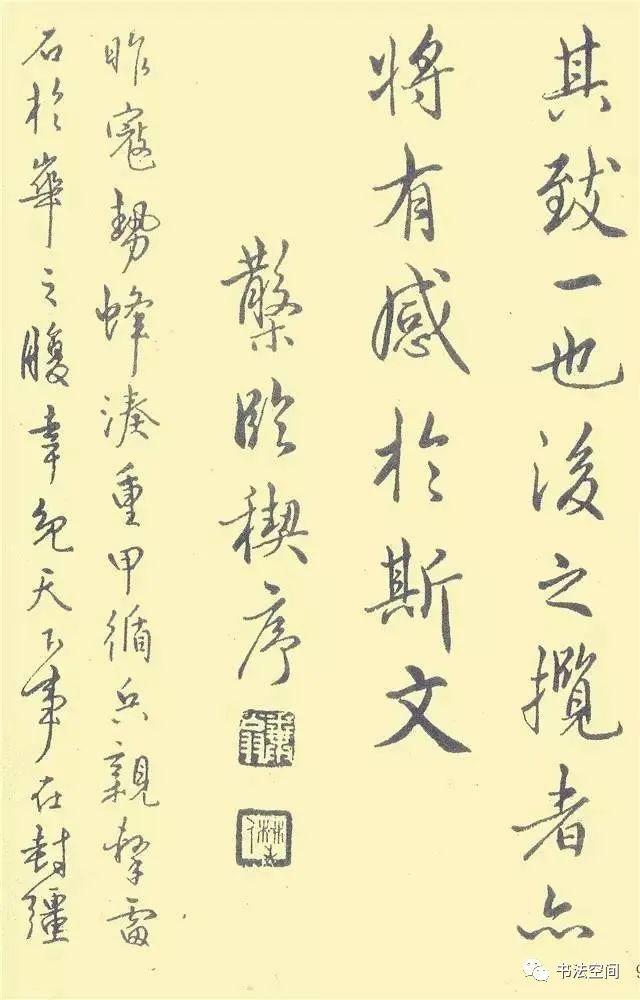 其致一也後之攬者亦
將有感於斯文
臨禊序
昨寇勢蜂湊重甲循兵親擊雷
石於華之腹幸免天下事在封疆
书法空间
9